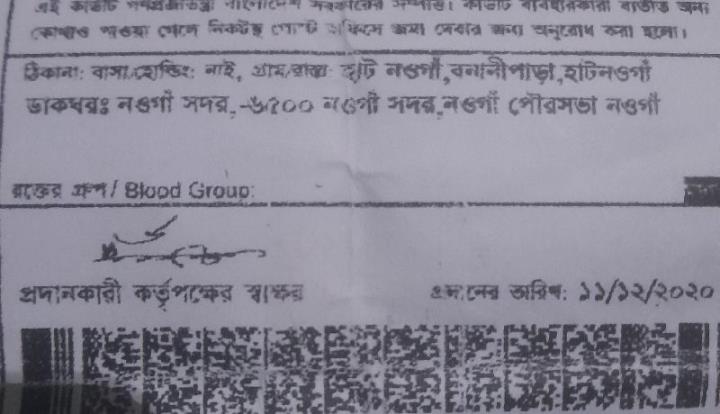 এই কার্ডটি গণপ্রজাতন্ত্রী বাংলাদেশ সরকারের সম্পত্তি। কার্ডটি ব্যবহারকারী ব্যতীত অন্য
কোথাও পাওয়া গেলে নিকটস্থ পোস্ট অফিসে জমা দেবার জন্য অনুরোধ করা হলো।
ঠিকানা: বাসা/হোল্ডিং: নাই, গ্রাম/রাস্তা: হাট নওগাঁ,বনানীপাড়া,হাটনওগাঁ
ডাকঘরঃ নওগাঁ সদর,-৬৫০০ নওগাঁ সদর,নওগাঁ পৌরসভা নওগাঁ
রক্তের গ্রুপ / Blood Group:
প্রদানকারী কর্তৃপক্ষের স্বাক্ষর
প্রদানের তারিখ: ১১/১২/২০২০